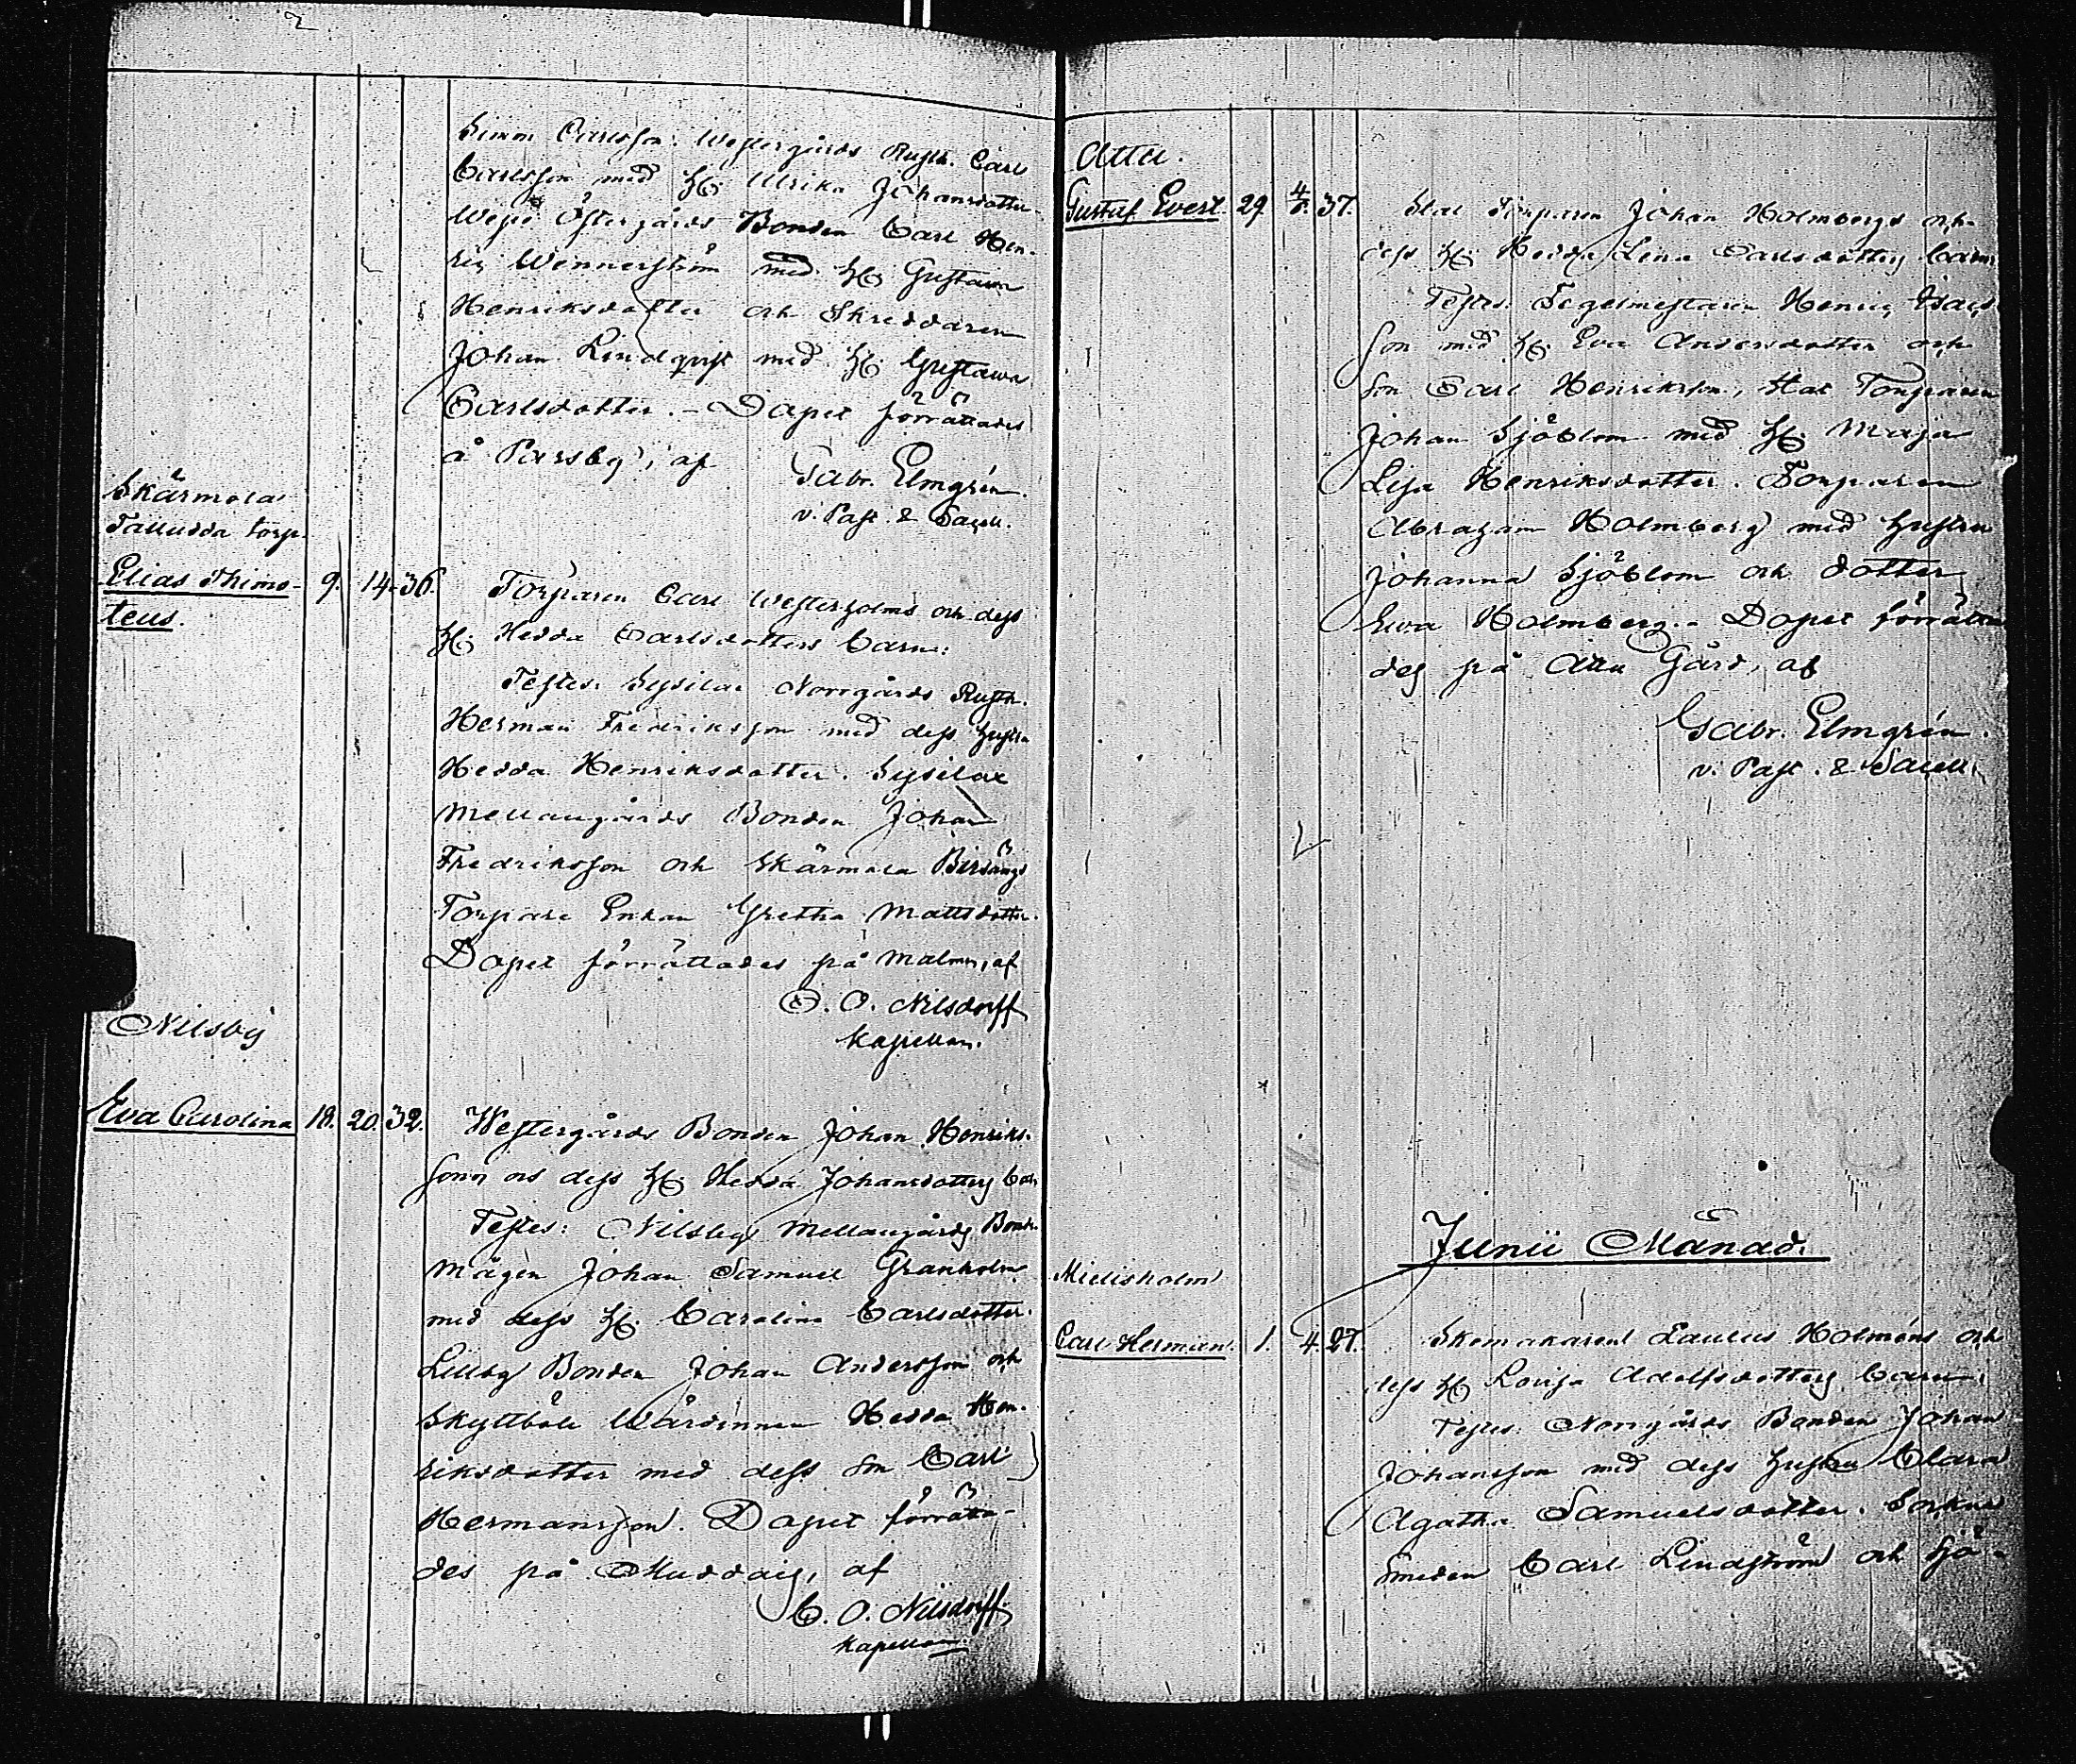 Simon Carlsson. Westergårds Rusth. Carl
Carlsson med H. Ulrika Johansdotter.
Östergårds Bonden Carl Hen-
ric Wennerström med H. Gustava
Henriksdotter och Skreddaren
Johan Lindqvist med H. Gustawa
Carlsdotter. - Dopet förrättades
å Parsby, af Gabr. Elmgrén.
v. Past. & Sacell.
Skärmola
Talludda torp.
Elias Thimo- 9. 14 - 36. Torparen Carl Westerholms och dess
teus.
H. Hedda Carlsdotters barn:
Testes: Sysilax Norrgårds Rusth.
Herman Fredriksson med dess hustru
Hedda Henriksdotter. Sysilax
Mellangårds Bonden Johan
Fredriksson och Skärmola
Torpare Enkan Gretha Mattsdotter.
Dopet förrättades på Malmen, af
C. O. Nilsdorff
Kapellan.
Nilsby
Eva Carolina 18. 20. 32. Westergårds Bonden Johan Henriks-
sons och dess H. Hedda Johansdotters
Testes: Nilsby Mellangårds Bonde
mågen Johan Samuel Granholm
med dess H. Carolina Carlsdotter.
Lillby Bonden Johan Andersson och
Skyttböle Wärdinnan Hedda Hen-
riksdotter med dess son Carl
Hermansson. Dopet förrätta-
des på Muddais, af
C. O. Nilsdorff
Kapellan.
Atta.
Gustaf Evert 29 4/6. 37. Stat Torparen Johan Holmbergs och
dess H. Hedda Lena Carlsdotters barn.
Testes: Tegelmästaren Henric Isacs-
son med H. Eva Andersdotter och
son Carl Henriksson, Stat Torparen
Johan Sjöblom med H. Maja
Lisa Henriksdotter. Torparen
Abraham Holmberg med hustru
Johanna Sjöblom och dotter
Ewa Holmberg. - Dopet förrätta
des på Atta Gård, af
Gabr. Elmgrén.
v. Past. & Sacell.
Junii Månad.
Mielisholm
Carl Herman. 1. 4. 27. Skomakaren Paulus Holméns och
dess H. Lovisa Adolfsdotters barn.
Testes: Norrgårds Bonden Johan
Johansson med dess hustru Clara
Agatha Samuelsdotter. Sockne
smeden Carl Lindström och Sjö-